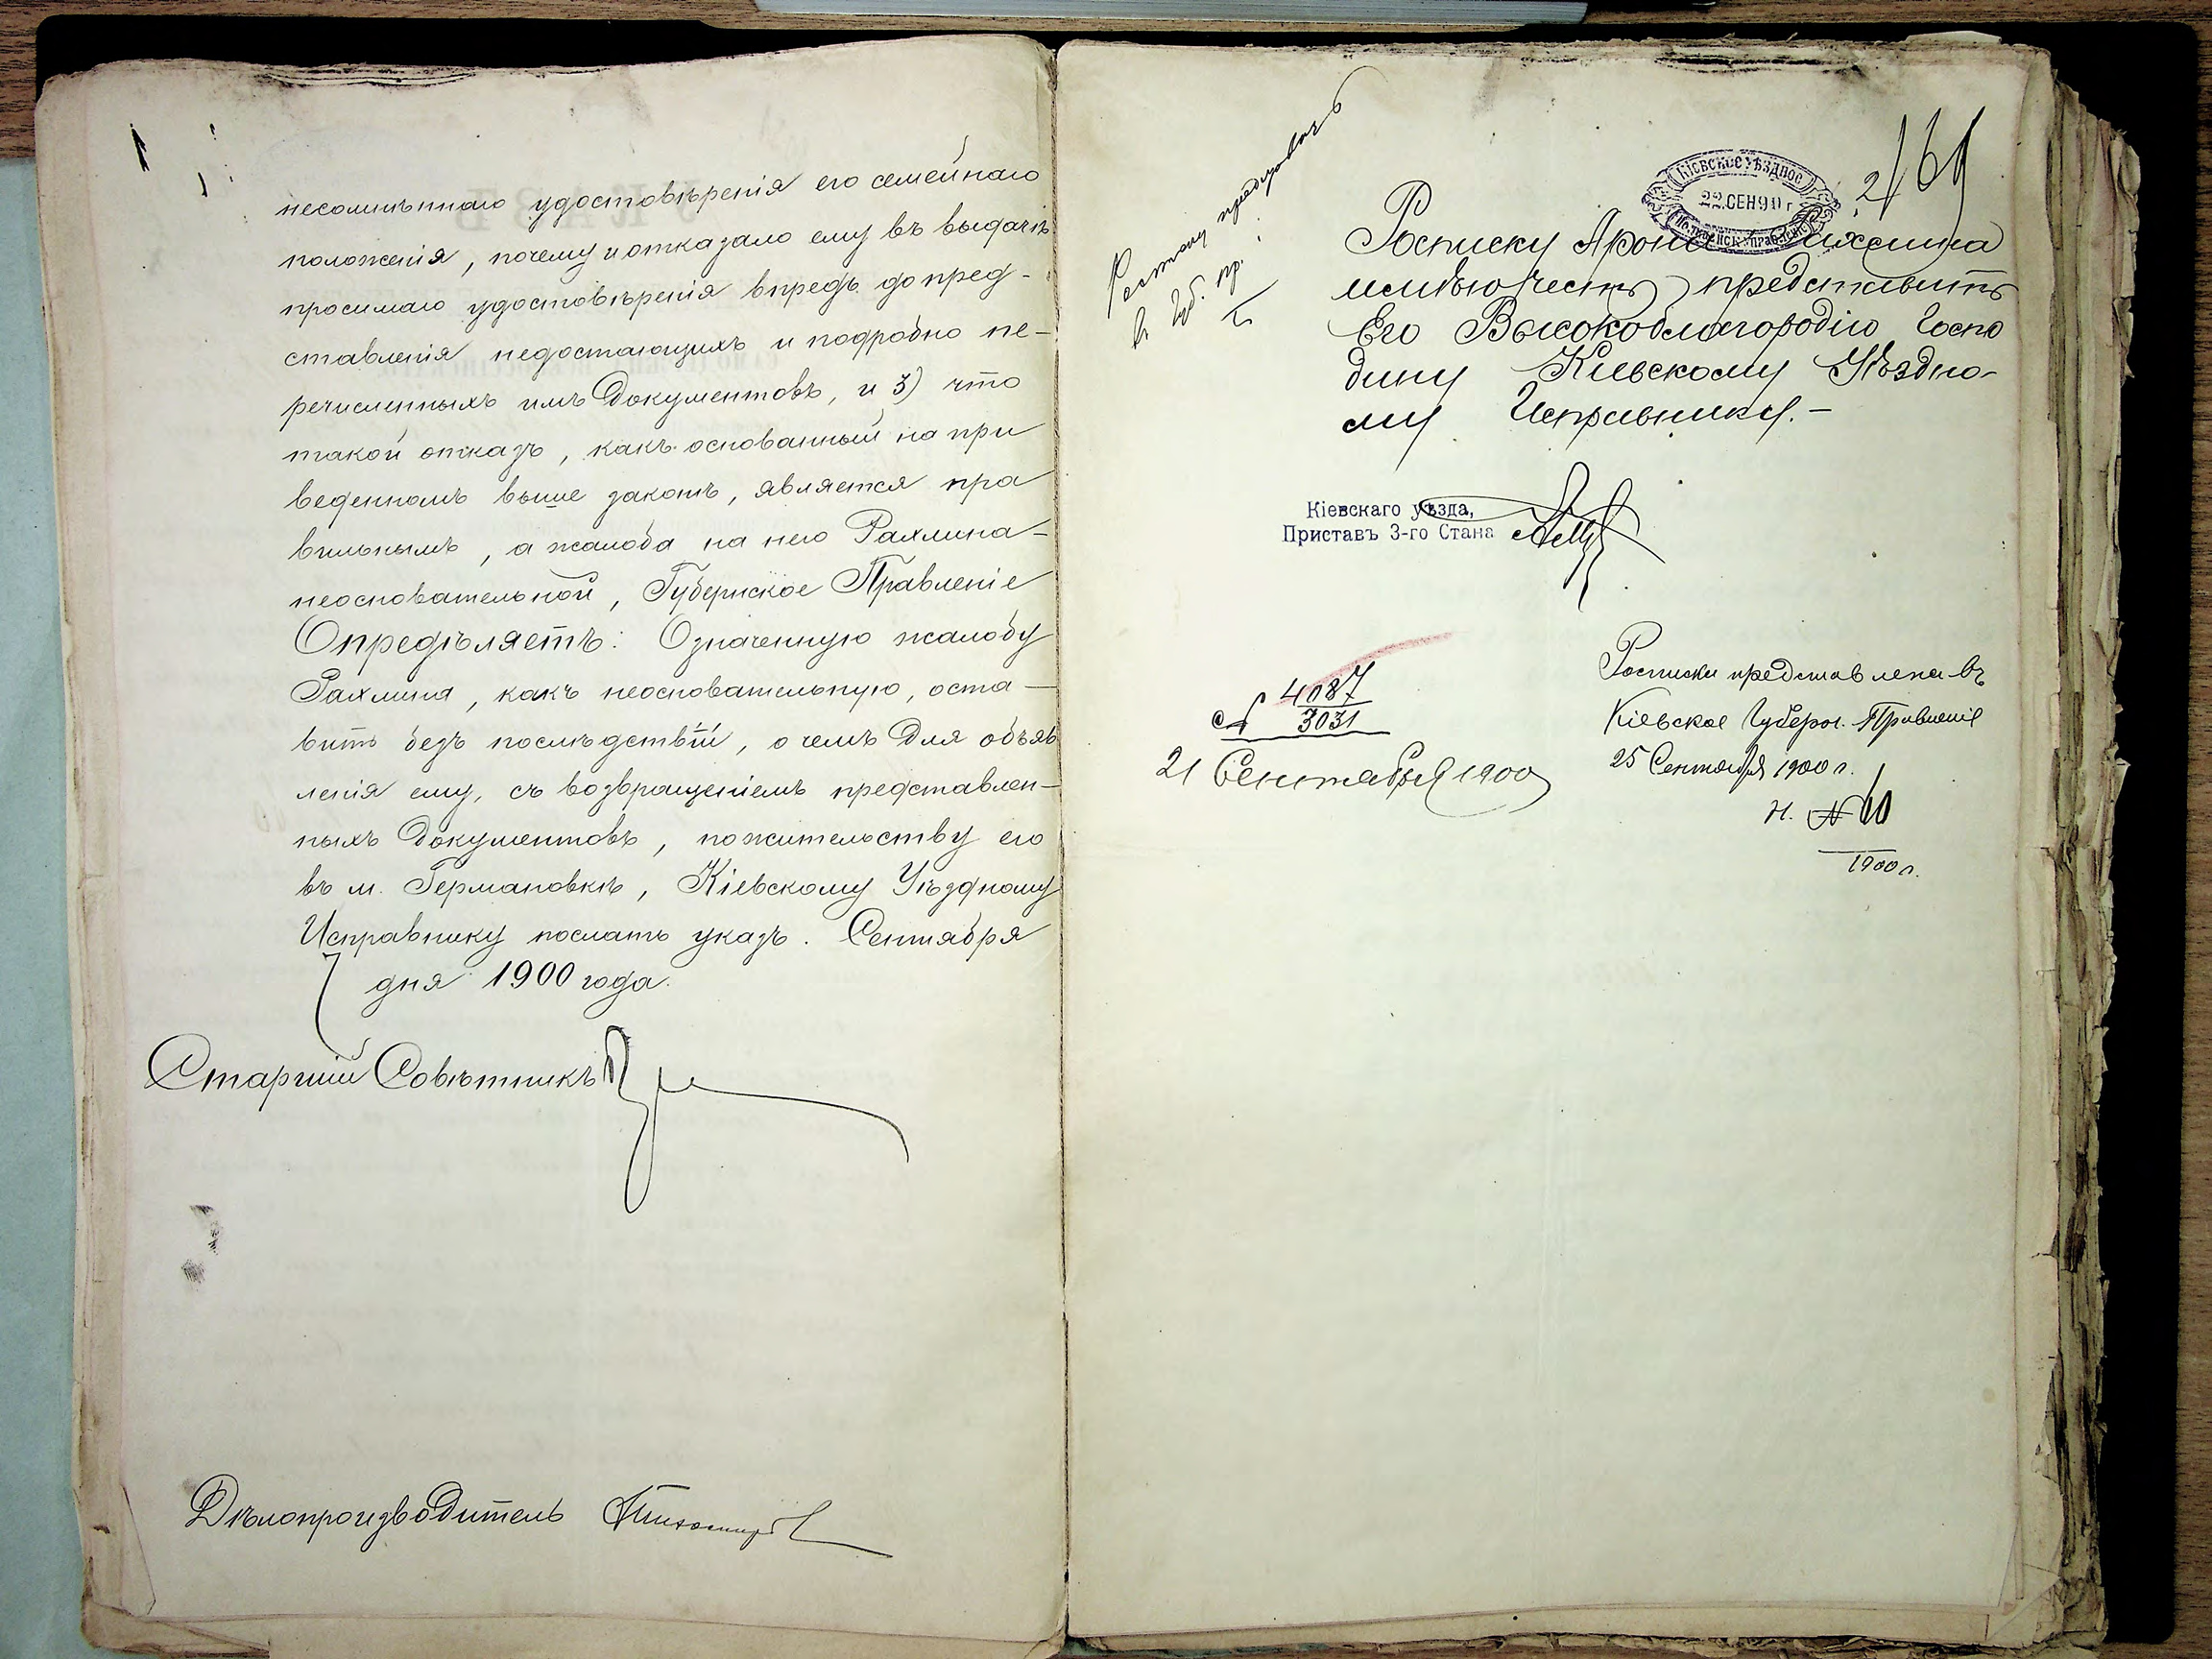 несомнѣннаго удостовѣренія его семейнаго
положенія, почему и отказало ему въ выдачѣ
просимаго удостовѣренія впредь до пред-
ставленія недостающихъ и подробно пе-
речисленныхъ имъ документовъ, и 3) что
такой отказъ, какъ основанный на при
веденномъ выше законѣ, является пра
вильнымъ, а жалоба на него Рахлина-
неосновательной, Губернское Правленіе
Опредѣляетъ: Означенную жалобу
Рахлина, какъ неосновательную, оста-
вить безъ послѣдствій, о чемъ для объяв
ленія ему, съ возвращеніемъ представлен-
ныхъ документовъ, по жительству его
въ м. Германовкѣ, Кіевскому Уѣздному
Исправнику послать указъ. Сентября
7 дня 1900 года.
Старшій Совѣтникъ
Дѣлопроизводитель
въ Губ. пр.
КІЕВСКОЕ УѢЗДНОЕ
22 СЕН 90 г
ПОЛИЦЕЙСК. УПРАВЛЕНІЕ
Росписку Арона Рахлина
имѣю честь представить
Его Высокоблагородію Госпо
дину Кіевскому Уѣздно-
му Исправнику.-
Кіевскаго уѣзда,
Приставъ 3-го Стана
№ 4087
3031
21 Сентября 1900
Росписка представлена въ
Кіевское Губерн. Правленіе
25 Сентября 1900 г.
Н. №
1900 г.